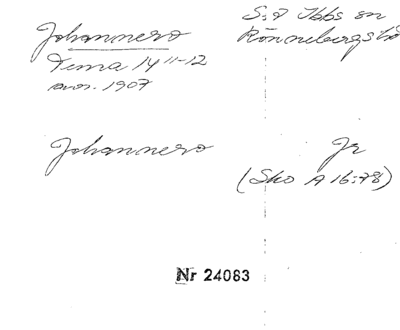 Johannero
Tema 14 11-12
nov. 1907
S: a Ibbs en
Rönnebergstr
Johannero
Jr
(Sko A 16:78)
Nr 24083